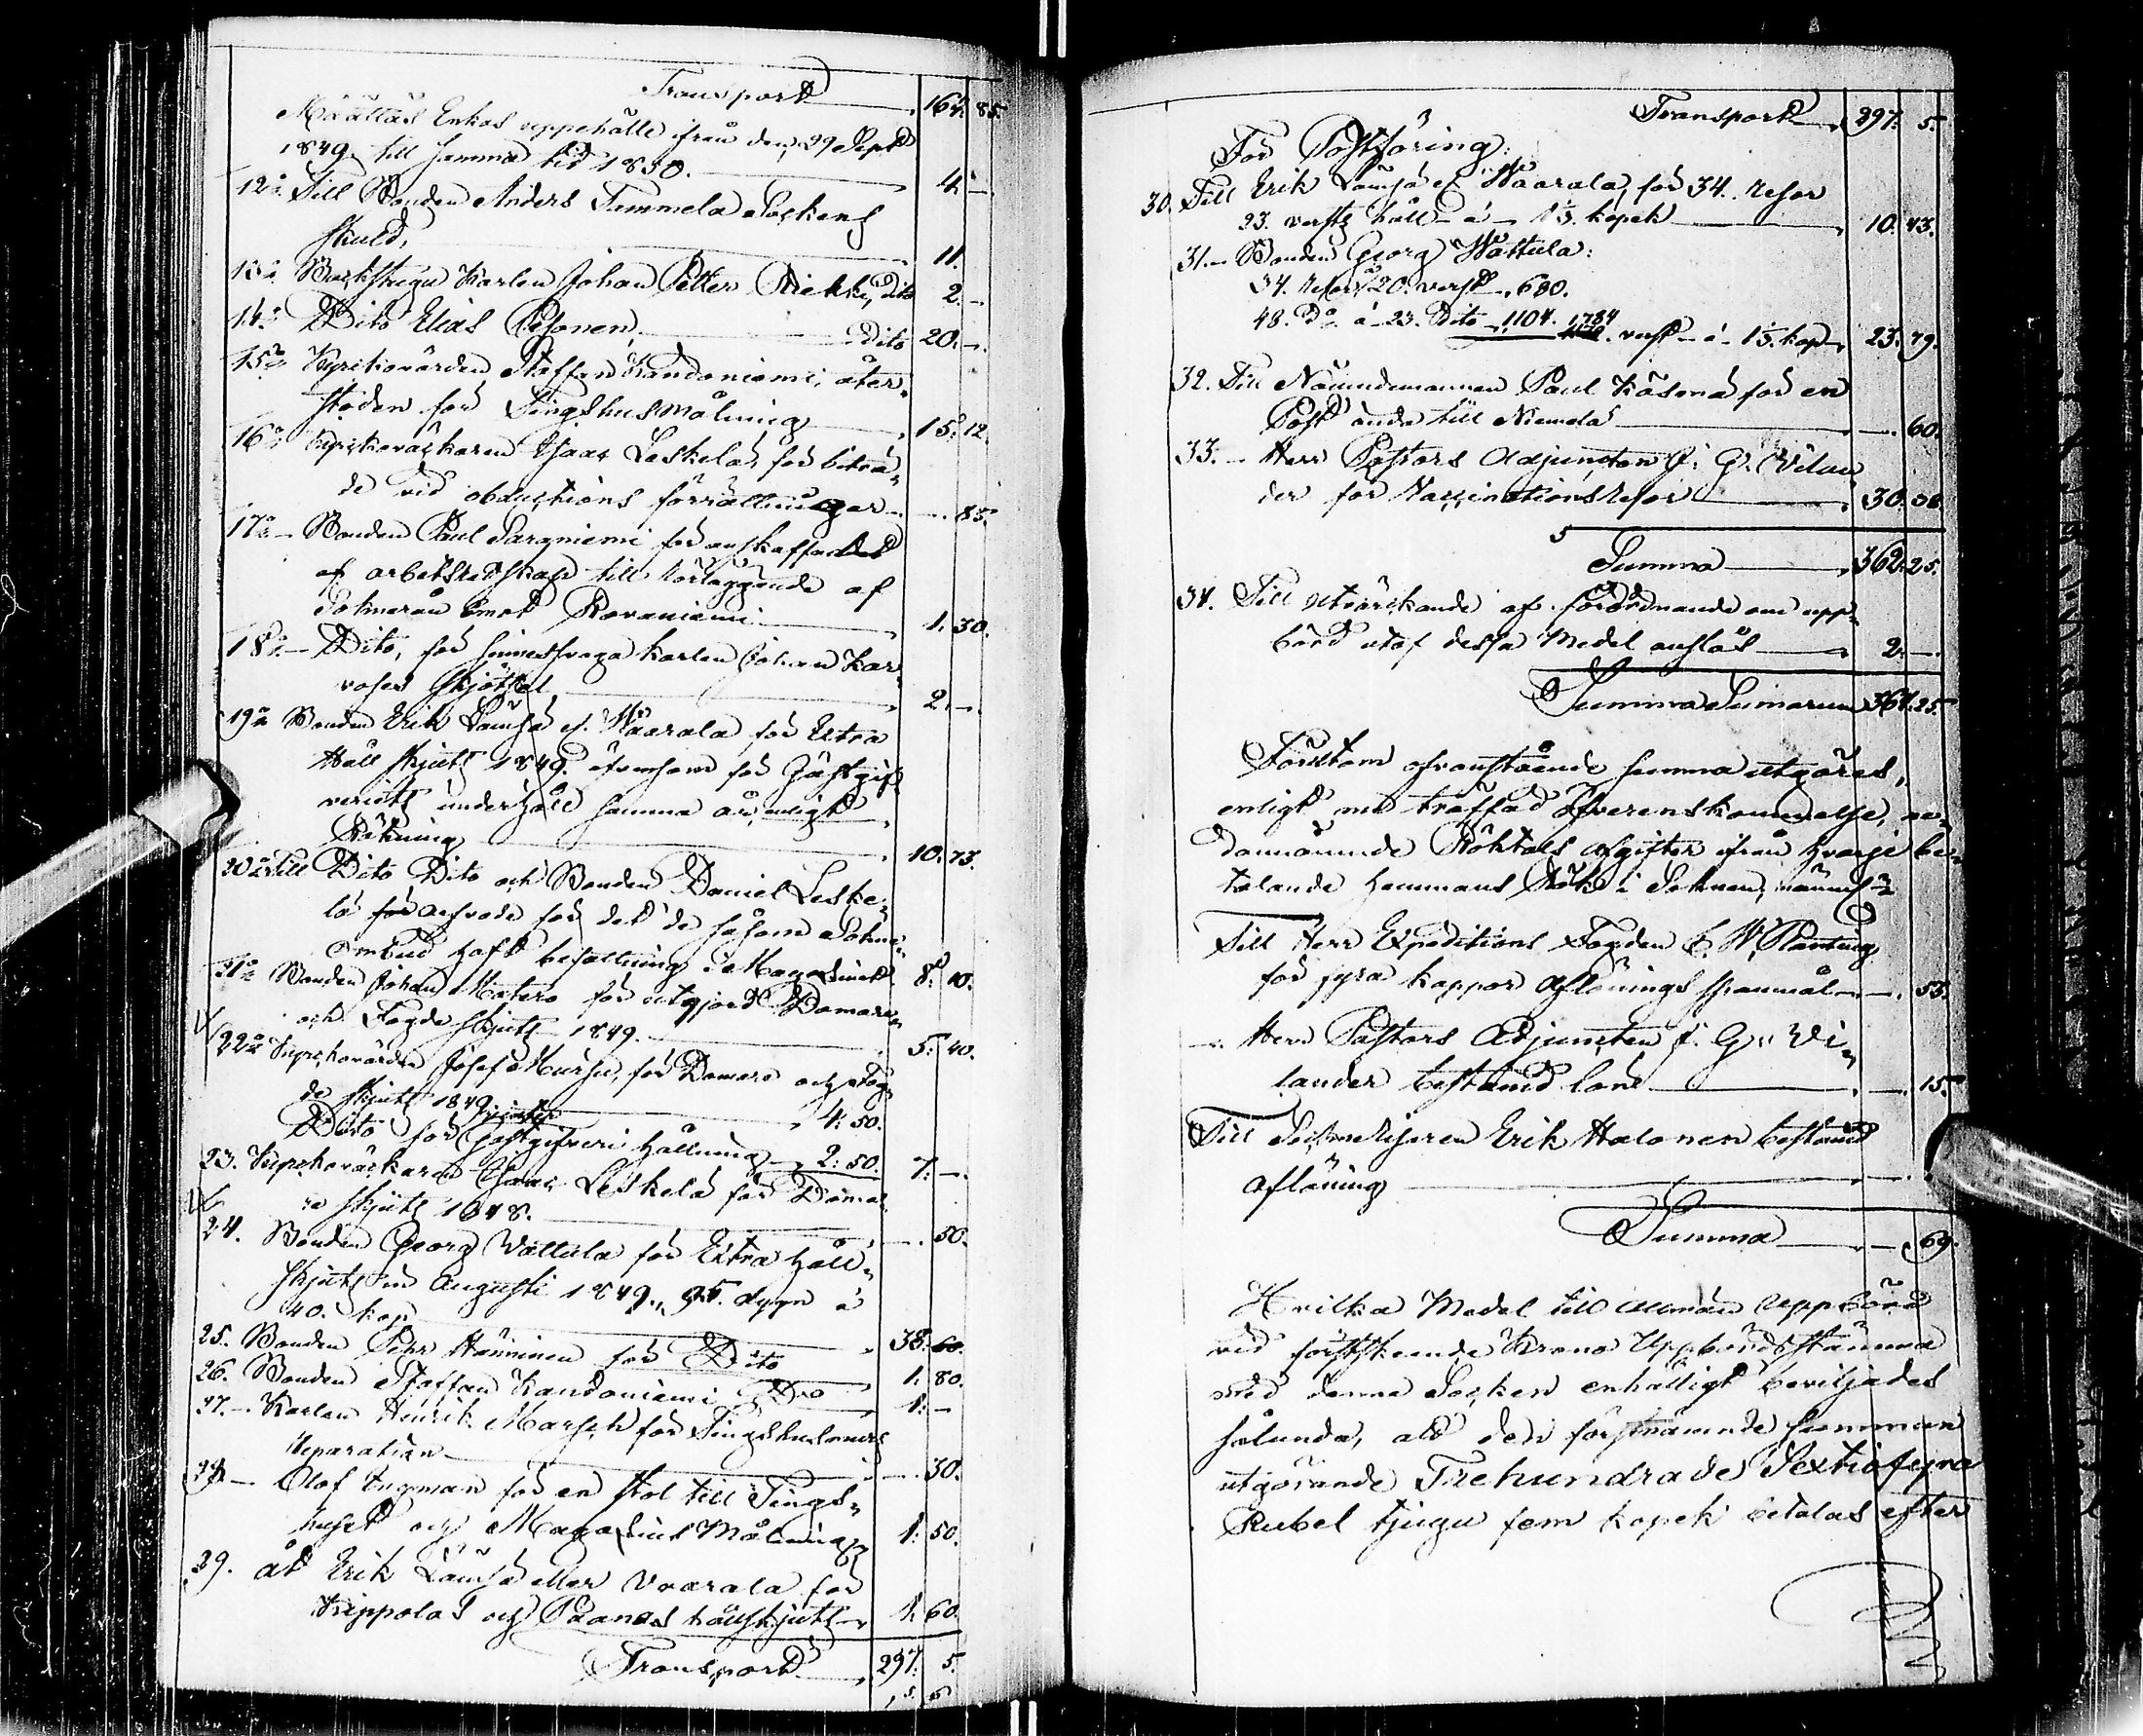 Transport 164. 85.
Määttäs Enkas uppehälle ifrån den 29 Sept
1849 till samma tid 1850. 4. —
12:o Till Bonden Anders Tummela Sockens
skuld, 11.
13:o Backstugu Karlen Johan Petter Kiekki, dito 2. —
14:o Dito Elias Pesonen, Dito 20. —
15:o Kyrkovärden Staffan Kandoniemi, åter-
stoden för Tingshusmålning 15. 12.
16:o Kyrkoväckaren Isaac Leskelä, för biträ-
de vid obductions förrättningar — 85.
17:o — Bonden Paul Parqniemi för anskaffandet
af arbetsredskap till vägläggande af
Sotneran emot Rovaniemi 1. 30.
18:o — Dito, för sinnessvaga karlen Johan Kar-
voses skjötsel 2. —
19:o Bonden Erik Lämsä el. Waarala för Extra
Håll skjuts 1849. äfvensom för Gästgif-
veriets underhåll samma år, enligt
Räkning 10. 73.
20:o Till Dito Dito och Bonden Daniel Leske-
lä för arfvode för det de såsom Sokne-
ombud haft befattning i Magasinet 8. 10.
21:o Bonden Johan Matero för utgjord Domare
och Fogde skjuts 1849. 5. 40.
22:o Kyrkovärden Josef Mursu, för Domare och Fog-
de skjuts 1849 4: 50.
Dito för Gästgifveri hållning 2: 50. 7. —
23. Kyrkoväckaren Isaac Leskelä för Doma-
re skjuts 1848. — 50.
24. Bonden Georg Wattula för Extra håll-
skjuts in Augusti 1849., 95. dygn à
40. kop 38. 60.
25. Bonden Pehr Hänninen för Dito 1. 80.
26. Bonden Staffan Kandoniemi Dio 1. —
27. — Karlen Henrik Marsch för Tingshusmurs
Reparation — 30.
28. — Olof Engman för en stol till Tings-
huset och Magasins Målning 1. 50.
29. åt Erik Lämsä eller Vaarala för
Kippolas och Paanas hållskjuts 1. 60.
Transport 297. 5.
Transport 297. 5.
För Postföring:
30. Till Erik Lämsä el. Waarala, för 34. resor
23. versts håll à 1⅓. kopek 10. 43.
31. — Bonden Georg Wattula:
34. resor à 20. verst 680.
48. Do à 23. Dito 1104. 1784
verst à 1⅓. kop 23. 79.
32. Till Nämndemannen Paul Käsmä för en
Post ända till Niemelä — 60.
33. — Herr Pastors Adjuncten J. G. Vilan-
der för Vaccinations resor 30. 38.
Summa 362. 25.
34. Till utvärckande af förordnande om upp-
börd utaf dessa Medel anslås 2. —
Summa Summarum 364. 25.
Förutom ofvanstående summa utgöres,
enligt nu träffad öfverenskommelse, ne-
dannämnde Röktals afgifter ifrån hvarje be-
talande hemmans Rök i Soknen, nämligen
Till Herr Expeditions Fogden C. W. Planting
för fyra kappor Aflönings spannmål — 55.
— Herr Pastors Adjuncten J. G. Vi-
lander bestämd lön — 15.
Till Sockneskrifvaren Erik Halonen bestämd
aflöning
Summa — 69.
Hvilka Medel till allmän uppbörd
vid förstskeende Krono Uppbördsstämma
med denna Socken enhälligt beviljades
sålunda, att den förstnämnde summan
utgörande Trehundrade Sextiofyra
Rubel tjugu fem kopek betalas efter